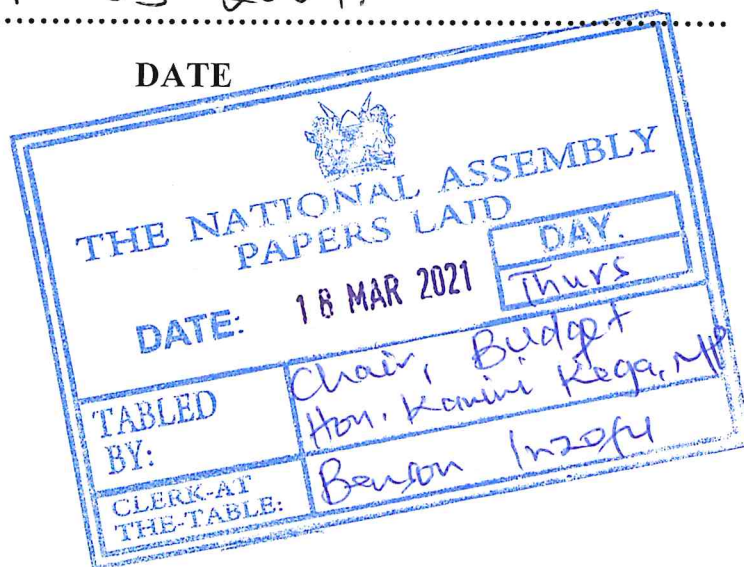 DATE
THE NATIONAL ASSEMBLY
PAPERS LAID
DATE: 18 MAR 2021
DAY.
Thurs
TABLED BY:
Chair, Budget
Hon. Kanini Kega, MP
CLERK-AT THE-TABLE:
Benson Inzofu